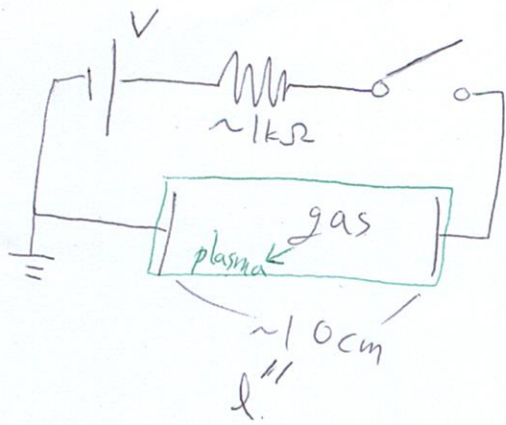 V
~1kΩ
gas
plasma
~10cm
l